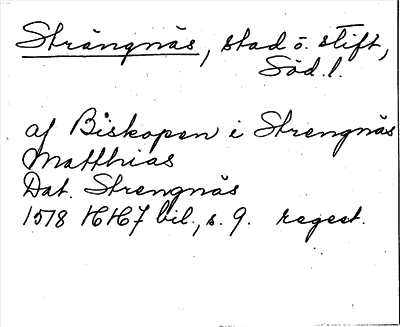 Strängnäs, stad o. stift,
Söd. l.
af Biskopen i Strengnäs
Matthias
Dat. Strengnäs
1518 HH7 bil., s. 9. regest.